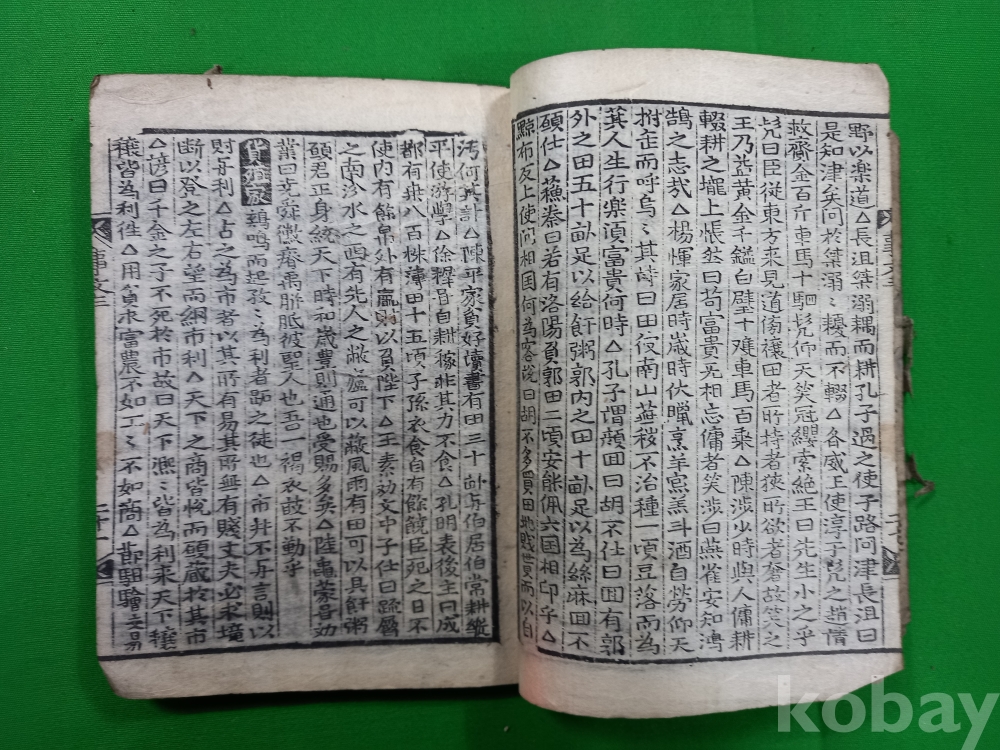 野以楽道△長沮桀溺耦而耕孔子過之使子路問津長沮曰
是知津矣问於桀溺〻耰而不輟△各威王使淳于髡之趙借
救齊金百斤車馬十駟髡仰天笑冠纓索絶王曰先生小之乎
髡曰臣従東方来見道傍禳田者所持者狭所欲者奢故笑之
王乃益黄金千鎰白璧十䨇車馬百乗△陳涉少時與人傭耕
輟耕之壠上悵然曰苟富貴无相忘傭者笑涉曰燕雀安知鴻
鵠之志㢤△楊惲家居時歳時伏臘烹羊炰羔斗酒自劳仰天
拊缶而呼乌〻其诗曰田彼南山蕪秽不治種一頃豆落而為
萁人生行楽湏富貴何時△孔子謂顔囬曰胡不仕曰囬有郭
外之田五十畒足以給飦粥郭内之田十畒足以為絲麻囬不
願仕△蘓秦曰若有洛陽負郭田二頃安能佩六国相印乎△
黥布反上使问相国何為客说曰胡不多買田地賤貰而以自
汚何其計△陳平家貧好读書有田三十畒与伯居伯常耕縦
平使游學△徐穉自耕稼非其力不食△孔明表後主曰成
都有桒八百株薄田十五頃子孫衣食自有餘饒臣死之日不
使内有餘帛外有羸財以負陛下△王素効文子仕曰疏属
之南汾水之西有先人之敝廬可以蔽風雨有田可以具飦粥
願君正身統天下時和歳豊則通也受賜多矣△陸龜蒙甞効
䓁曰尭舜黴瘠禹胼胝彼聖人也吾一褐衣敢不勤乎
貨 鷄鳴而起孜〻為利者跖之徒也△市井不与言則以
財与利△占之為市者以其所有易其所無有賤丈夫必求壠
断以登之左右望而網市利△天下之商皆悦而願蔵於其市
△諺曰千金之子不死於市故曰天下熈〻皆為利来天下穰
穰皆為利徃△用貧求富農不如工〻不如商△ 駔驓交易